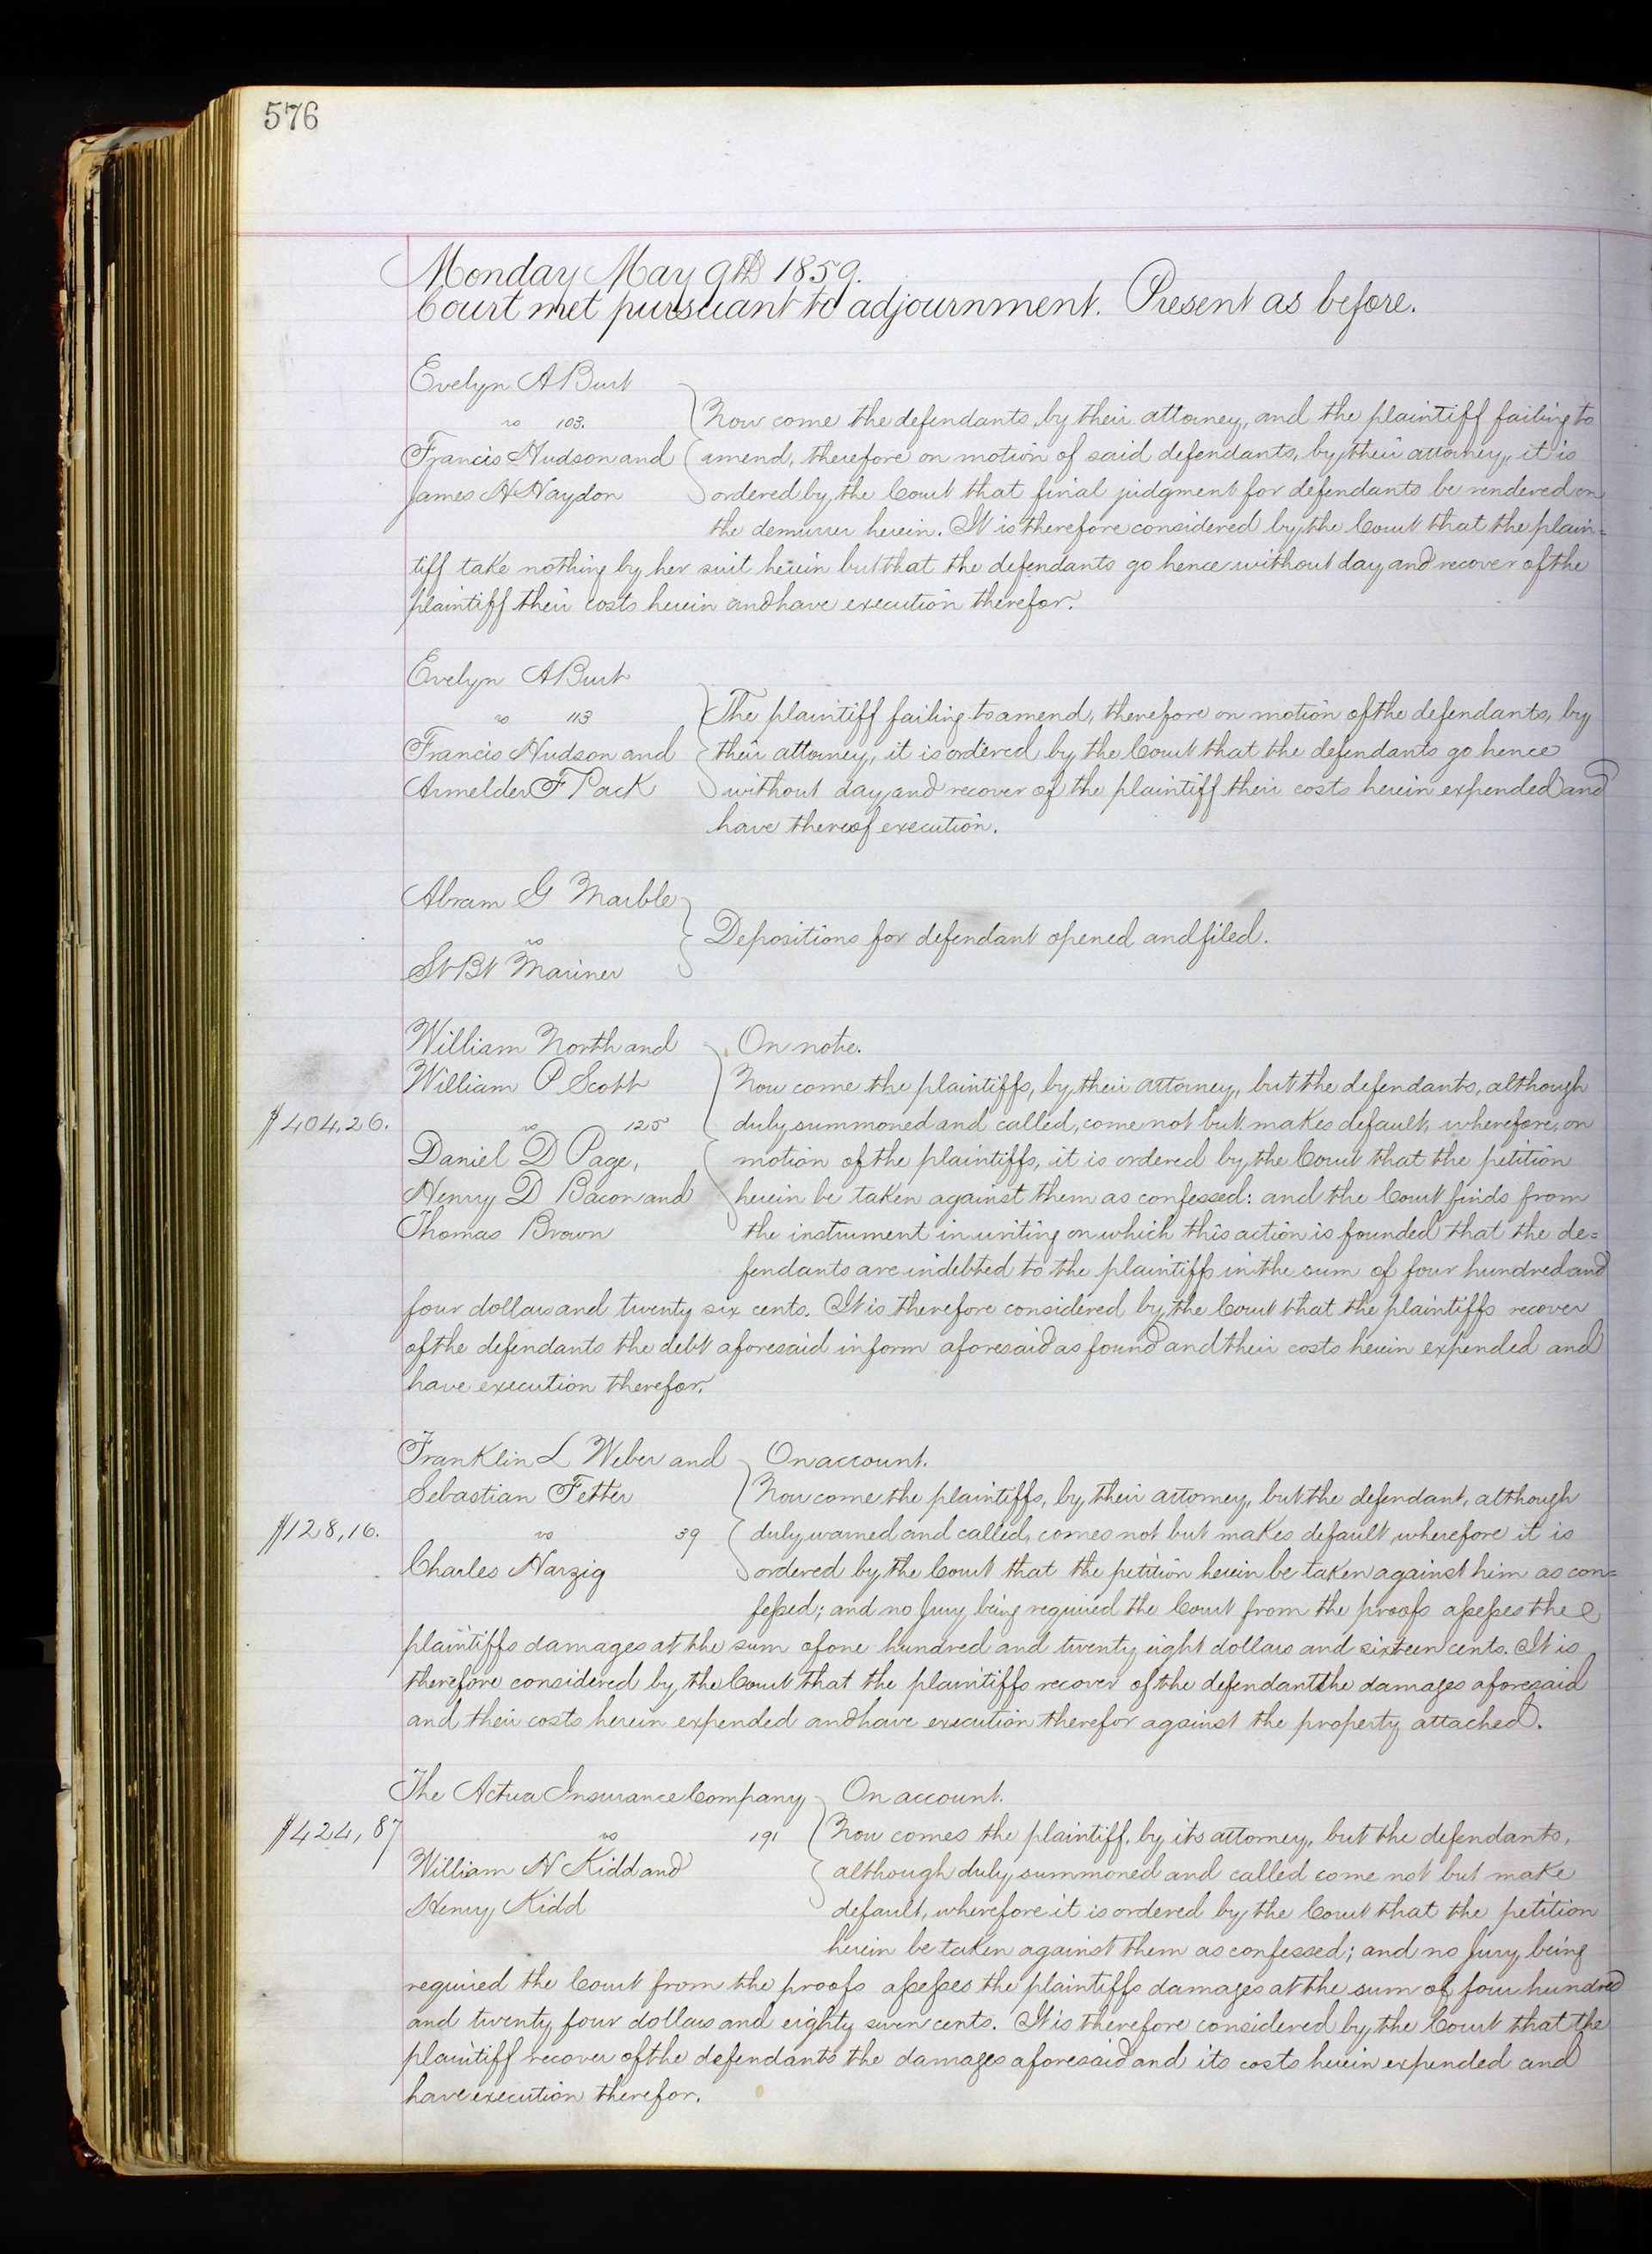 576
Monday May 9th 1859.
Court met pursuant to adjournment. Present as before.
Evelyn A Burt
vs 103.
Francis Hudson and
James H Haydon
Now come the defendants, by their attorney, and the plaintiff failing to
amend, therefore on motion of said defendants, by their attorney, it is
ordered by the Court that final judgment for defendants be rendered on
the demurrer herein. It is therefore considered by the Court that the plain=
tiff take nothing by her suit herein but that the defendants go hence without day and recover of the
plaintiff their costs herein and have execution therefor.
Evelyn A Burt
vs 113
Francis Hudson and
Armelder F Pack
The plaintiff failing to amend, therefore on motion of the defendants, by
their attorney, it is ordered by the Court that the defendants go hence
without day and recover of the plaintiff their costs herein expended and
have thereof execution.
Abram G Marble
vs
St Bt Mariner
Depositions for defendant opened and filed.
William North and
William P Scott
$404,26. vs 125
Daniel D Page,
Henry D Bacon and
Thomas Brown
On note.
Now come the plaintiffs, by their attorney, but the defendants, although
duly summoned and called, come not but makes default, wherefore, on
motion of the plaintiffs, it is ordered by the Court that the petition
herein be taken against them as confessed: and the Court finds from
the instrument in writing on which this action is founded that the de=
fendants are indebted to the plaintiffs in the sum of four hundred and
four dollars and twenty six cents. It is therefore considered by the Court that the plaintiffs recover
of the defendants the debt aforesaid in form aforesaid as found and their costs herein expended and
have execution therefor.
Franklin L Weber and
Sebastian Fetter
$128,16. vs 39
Charles Harzig
On account.
Now come the plaintiffs, by their attorney, but the defendant, although
duly warned and called, comes not but makes default, wherefore it is
ordered by the Court that the petition herein be taken against him as con=
fessed; and no Jury being required the Court from the proofs assesses the
plaintiffs damages at the sum of one hundred and twenty eight dollars and sixteen cents. It is
therefore considered by the Court that the plaintiffs recover of the defendant the damages aforesaid
and their costs herein expended and have execution therefor against the property attached.
The Actua Insurance Company
$424,87 vs 191
William H Kidd and
Henry Kidd
On account.
Now comes the plaintiff, by its attorney, but the defendants,
although duly summoned and called come not but make
default, wherefore it is ordered by the Court that the petition
herein be taken against them as confessed; and no Jury being
required the Court from the proofs assesses the plaintiffs damages at the sum of four hundred
and twenty four dollars and eighty seven cents. It is therefore considered by the Court that the
plaintiff recover of the defendants the damages aforesaid and its costs herein expended and
have execution therefor.